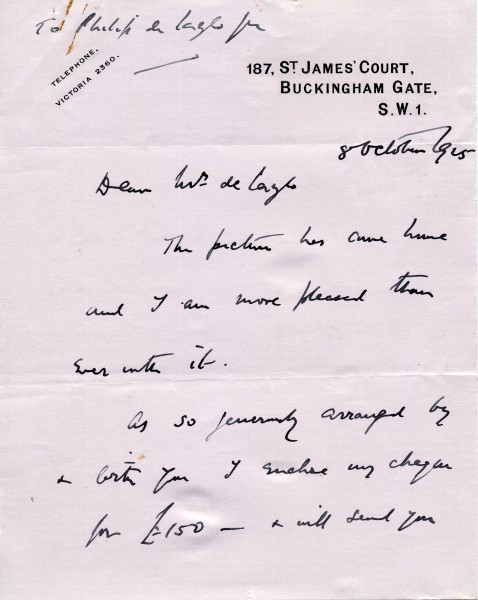 To Philip de Laszlo
TELEPHONE,
VICTORIA 2360.
187, ST JAMES' COURT,
BUCKINGHAM GATE,
S.W.1.
8 October 1925
Dear Mrs de Laszlo
The picture has come home
and I am more pleased than
ever with it.
As so generously arranged by
& with you I enclose my cheque
for £150 — & will send you